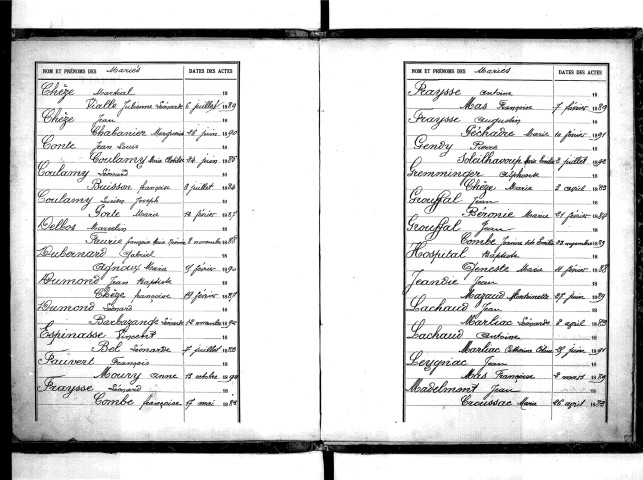 NOM ET PRÉNOMS DES Mariés DATES DES ACTES
Chèze Martial 18
Vialle Julienne Léonarde 6 juillet 1889
Chèze Jean 18
Chabanier Marguerite 28 juin 1890
Conte Jean Louis 18
Coulamy Marie Clotilde 24 juin 1886
Coulamy Léonard 18
Buisson françoise 3 juillet 1884
Coulamy Lucien Joseph 18
Gorte Marie 12 février 1887
Delbos Marcelin 18
Fleurie françoise Marie 2 novembre 1886
Dubernard Gabriel 18
Agnoux Marie 9 février 1890
Dumond Jean Baptiste 18
Chèze françoise 19 février 1887
Dumond Léonard 18
Barbazange Léonarde 12 novembre 1892
Espinasse Vincent 18
Bel Léonarde 7 juillet 1883
Fauvert François 18
Moury Anne 15 octobre 1892
Fraysse Léonard 18
Combe françoise 17 mai 1884
NOM ET PRÉNOMS DES Mariés DATES DES ACTES
Fraysse Antoine 18
Mas Françoise 7 février 1889
Fraysse Augustin 18
Péchadre Marie 10 février 1891
Gendy Pierre 18
Soleilhavoup Marie Emilie 2 juillet 1892
Gremminger Alphonse 18
Chèze Marie 3 avril 1883
Grouffal Jean 18
Béronie Marie 21 février 1884
Grouffal Jean 18
Combe Jeanne 23 novembre 1889
Hospital Baptiste 18
Geneste Marie 11 février 1888
Jeandie Jean 18
Mazaud Montoinette 27 juin 1889
Lachaud Jean 18
Marliac Léonarde 8 avril 1883
Lachaud Antoine 18
Marliac Catherine 27 juin 1891
Leygniac Jean 18
Mas Françoise 2 mars 1889
Madelmont Jean 18
Croussac Marie 26 avril 1883